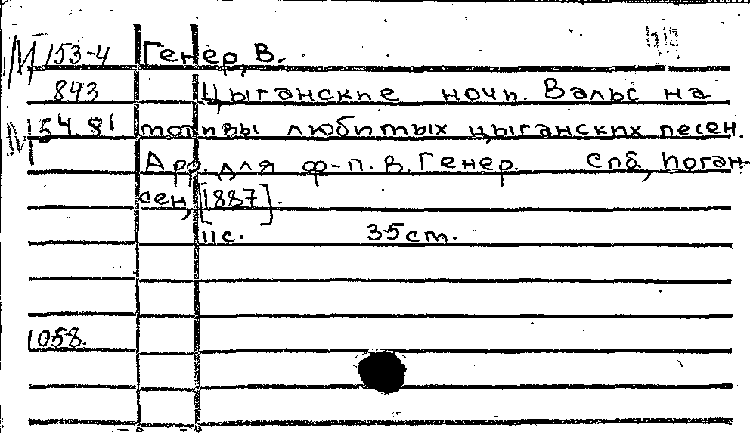 М 153-4 Генер, В.
843 Цыганские ночи. Вальс на
М 54.81 мотивы любимых цыганских песен.
Арр. для ф-п. В. Генер. Спб, Иоган-
сен, [1887].
11с. 35 ст.
1058.